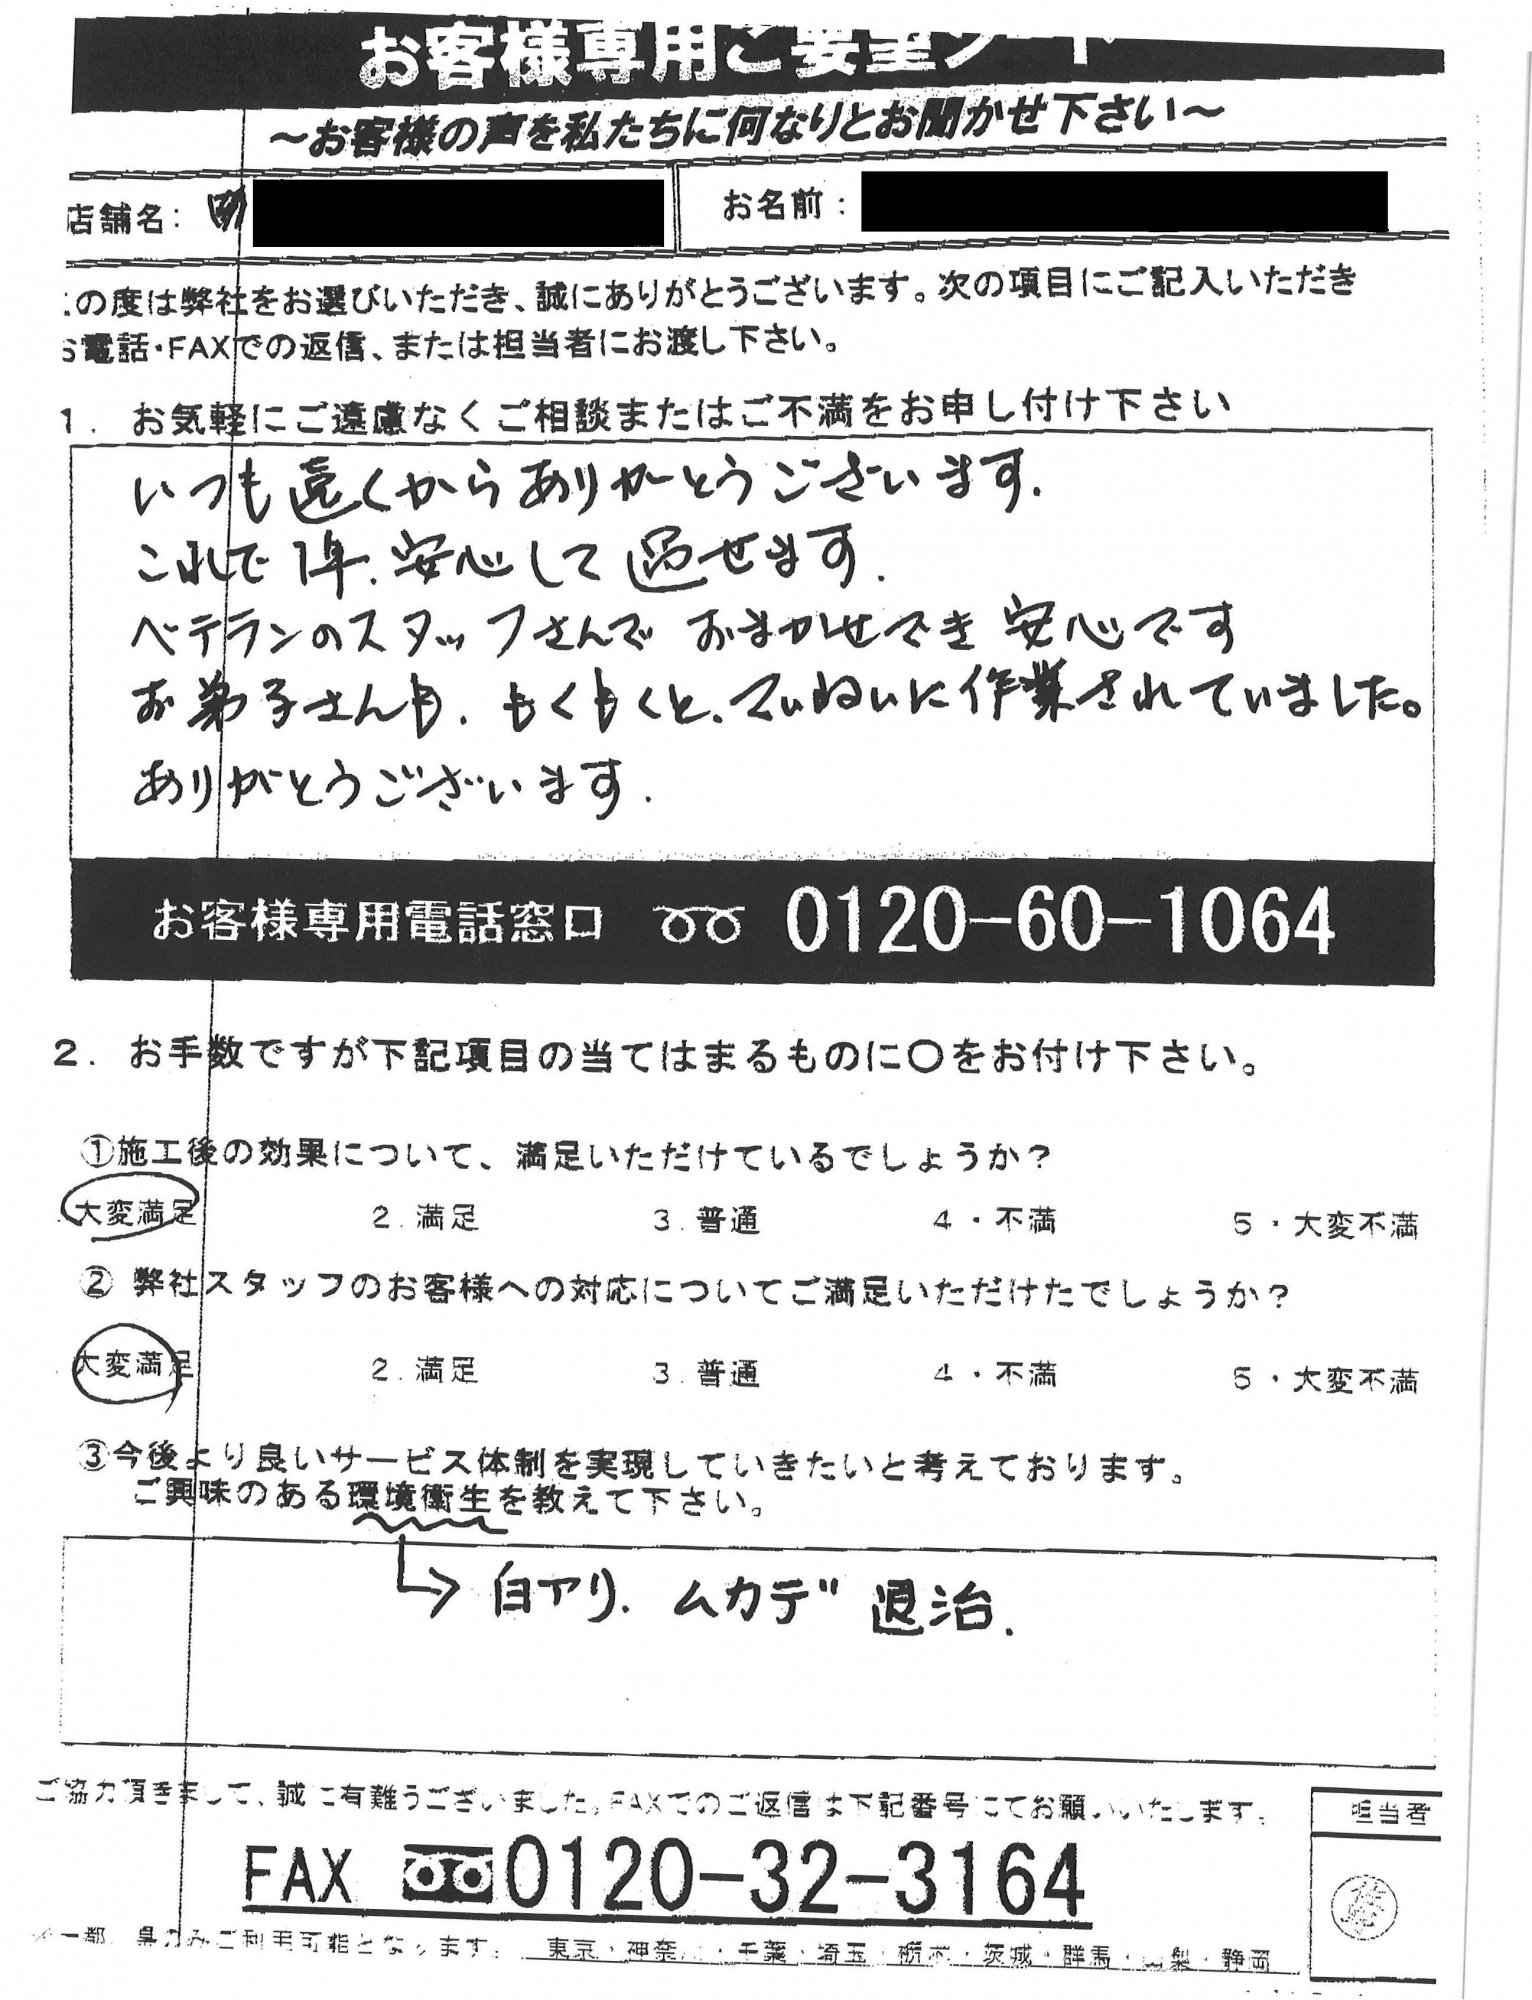 お客様専用ご要望シート
～お客様の声を私たちに何なりとお聞かせ下さい～
店舗名: ㈲
お名前:
この度は弊社をお選びいただき、誠にありがとうございます。次の項目にご記入いただき
お電話・FAXでの返信、または担当者にお渡し下さい。
1. お気軽にご遠慮なくご相談またはご不満をお申し付け下さい
いつも遠くからありがとうございます.
これで1年.安心して過せます.
ベテランのスタッフさんで おまかせでき 安心です
お弟子さんも.もくもくと.ていねいに作業されていました。
ありがとうございます.
お客様専用電話窓口 0120-60-1064
2. お手数ですが下記項目の当てはまるものに〇をお付け下さい。
①施工後の効果について、満足いただけているでしょうか?
大変満足 2.満足 3.普通 4・不満 5・大変不満
② 弊社スタッフのお客様への対応についてご満足いただけたでしょうか?
大変満足 2.満足 3.普通 4・不満 5・大変不満
③今後より良いサービス体制を実現していきたいと考えております。
ご興味のある環境衛生を教えて下さい。
→ 白アリ. ムカデ 退治.
ご協力頂きまして、誠に有難うございました。FAXでのご返信は下記番号にてお願いいたします。
担当者
FAX 0120-32-3164
※一部、県のみご利用可能となります。 東京・神奈川・千葉・埼玉・栃木・茨城・群馬・山梨・静岡